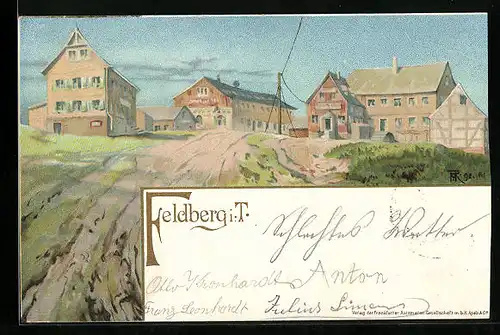 Feldberg i. T.
Schlechtes Wetter.
Otto Kronhardt Anton
Franz Leonhardt Julius Simon
Verlag der Frankfurter Gesellschaft